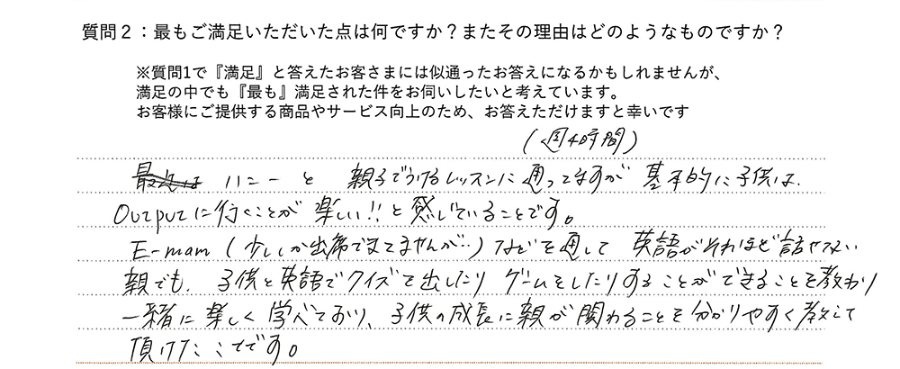 質問２：最もご満足いただいた点は何ですか？またその理由はどのようなものですか？
※質問1で『満足』と答えたお客さまには似通ったお答えになるかもしれませんが、
満足の中でも『最も』満足された件をお伺いしたいと考えています。
お客様にご提供する商品やサービス向上のため、お答えただけますと幸いです
(週4時間)
ハニーと 親子でうけるレッスンに通ってますが 基本的に子供は、
Outputに行くことが楽しい!!と感じていることです。
E-mam (少ししか出席できてませんが…) などを通して 英語がそれほど話せない
親でも、子供と英語でクイズを出したり ゲームをしたりすることができることを教わり
一緒に楽しく学べており、子供の成長に親が関わることを分かりやすく教えて
頂けたことです。